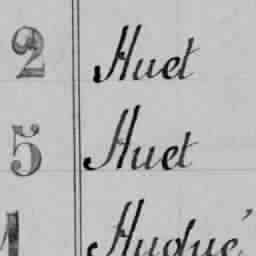 2 Huet
5 Huet
1 Hudué